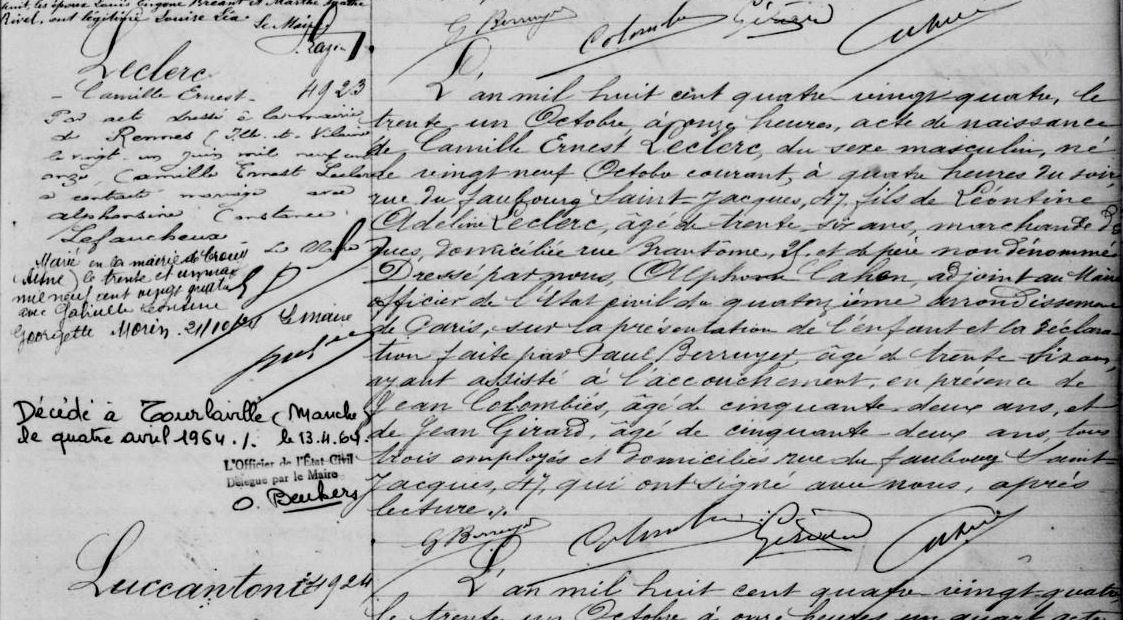 huit, les époux Louis Eugène Bréant et Marthe Agathe
Rivel, ont légitimé Louise Léa
Le Maire
Leclerc
Camille Ernest - 4923
Par acte dressé à la mairie
de Rennes (Ille-et-Vilaine)
le vingt un juin mil neuf cent
onze Camille Ernest Leclerc
a contracté mariage avec
Alphonsine Constance
Lefaucheux
Marié en la mairie de
(Aisne) le trente et un mai
mil neuf cent vingt quatre
avec Gabrielle Léontine
Georgette Morin. 21/10/ Le Maire
Décédé à Tourlaville (Manche)
le quatre avril 1964 ./. le 13.4.64
L'Officier de l'État-Civil
Délégué par le Maire
O. Beukers
Luccantoni 4924
G Berruyer Colombiés Girard Cahen
L'an mil huit cent quatre vingt-quatre, le
trente un Octobre, à onze heures, acte de naissance
de Camille Ernest Leclerc, du sexe masculin, né
le vingt neuf Octobre courant, à quatre heures du soir
rue du faubourg Saint-Jacques, 47, fils de Léontine
Adeline Leclerc, âgée de trente six ans, marchande des
rues, domiciliée rue et de père non dénommé
Dressé par nous, Alphonse Cahen, adjoint au Maire
officier de l'État civil du quatorzième arrondissement
de Paris, sur la présentation de l'enfant et la déclara-
tion faite par Paul Berruyer, âgé de trente six ans,
ayant assisté à l'accouchement, en présence de
Jean Colombiés, âgé de cinquante-deux ans, et
de Jean Girard, âgé de cinquante-deux ans, tous
trois employés et domiciliés rue du faubourg Saint-
Jacques, 47, qui ont signé avec nous, après
lecture ./.
G Berruyer Colombiés Girard Cahen
L'an mil huit cent quatre vingt-quatre
le trente un Octobre à onze heures un quart acte